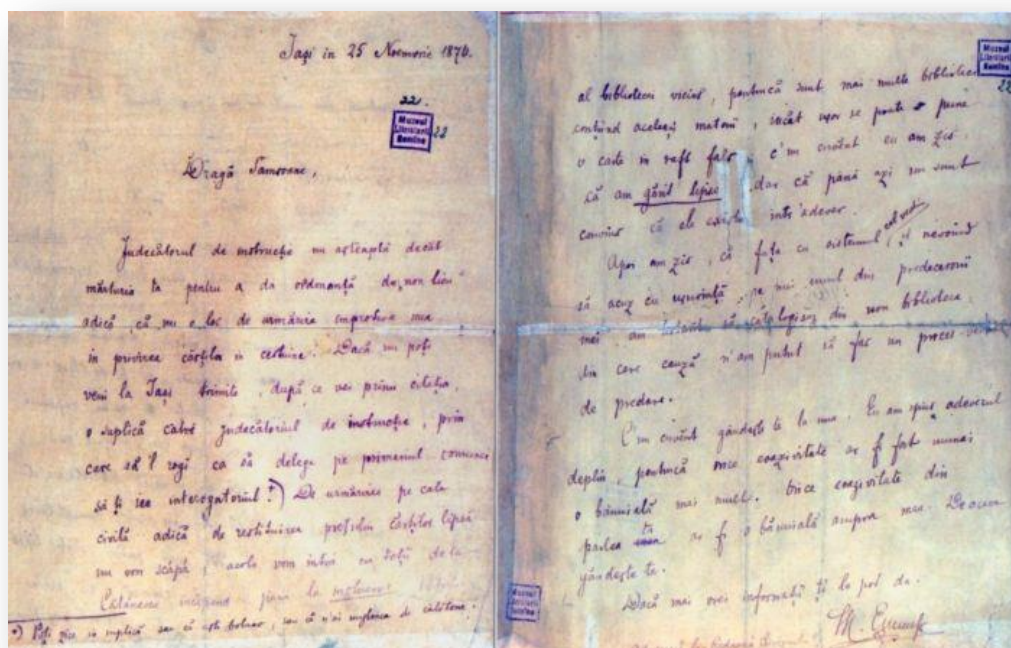 Iași in 25 Noemvrie 1876.
221.
Muzeul
Literaturii
Romîne
22
Dragă Samsoane,
Judecătorul de instrucție nu așteaptă decât
mărturia ta pentru a da ordonanță de non lieu
adică, că nu e loc de urmărire improtiva mea
in privirea cărților in cestiune. Dacă nu poți
veni la Iași trimite, după ce vei primi citația
o suplică catre judecătoriul de instrucție, prin
care să'l rogi ca să delege pe primarul comunei
să ți iea interogatoriul.*) De urmărirea pe cale
civilă adică de restituirea prețului cărților lipsă
nu vom scăpa, acolo vom intra cu toții de la
Cătănescu incepend pana la
*) Poți zice in suplică sau că ești bolnav, sau că n'ai mijloace de călătorie.
Muzeul
Literaturii
Romîne
22
al bibliotecii vicios, pentrucă sunt mai multe biblioteci
conținând aceleași materii, incât ușor se poate pune
o carte in raft fals, c'un cuvânt eu am zis
că am găsit lipse, dar că până azi nu sunt
convins că ele există intr'adever.
Apoi am zis, că față cu sistemul cel vechi, și nevoind
să acuz cu ușurință pe nici unul din predecesorii
mei am să cataloghisez din nou biblioteca
din care cauză n'am putut să fac un proces-verbal
de predare.
C'un cuvânt gândește te la una. Eu am spus adeverul
deplin, pentrucă orice coazivitate ar fi fost numai
o bănuială mai mult. Orice coazivitate din
partea ta ar fi o bănuială asupra mea. De aceea
gândește te.
Dacă mai vrei informații ți le pot da.
M. Eminescu
Muzeul
Literaturii
Romîne